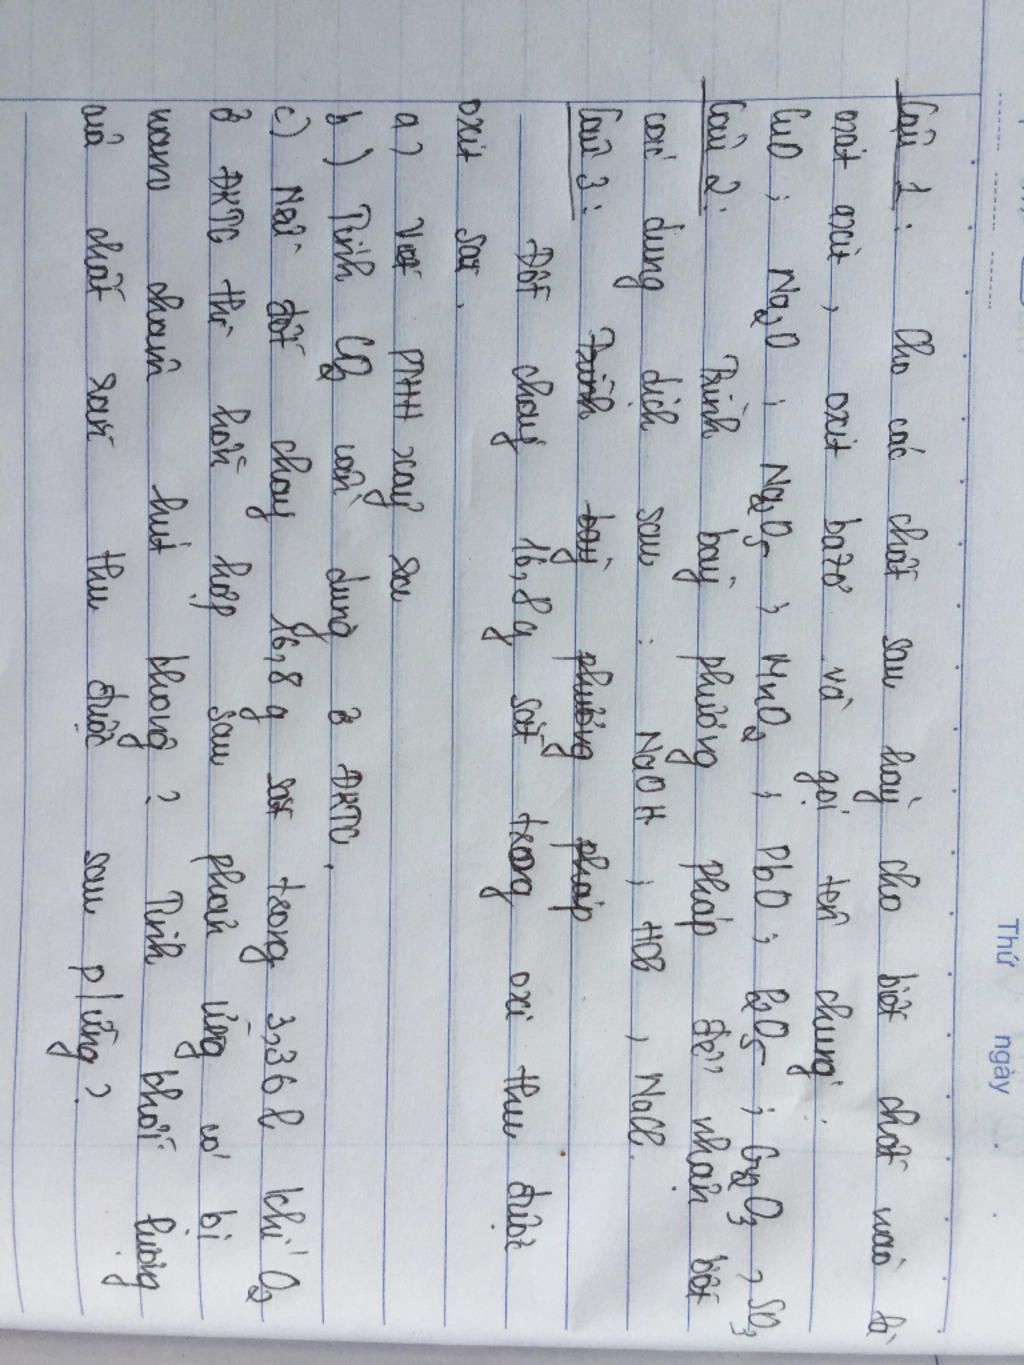 Thứ ngày
Câu 1: Cho các chất sau hãy cho biết chất nào là
oxit axit, oxit bazơ và gọi tên chung:
CuO ; Na2O ; N2O5 ; MnO2 ; PbO ; P2O5 ; Cr2O3 , SO3
Câu 2: Trình bày phương pháp để nhận biết
các dung dịch sau : NaOH ; HCl , NaCl.
Câu 3: Trình bày phương pháp
Đốt cháy 16,8g sắt trong oxi thu được
oxit sắt.
a) Viết PTHH xảy ra
b) Tính O2 cần dùng ở ĐKTC.
c) Nếu đốt cháy 16,8g sắt trong 3,36 l khí O2
ở ĐKTC thì hỗn hợp sau phản ứng có bị
nam châm hút không? Tính khối lượng
các chất rắn thu được sau p/ứng?